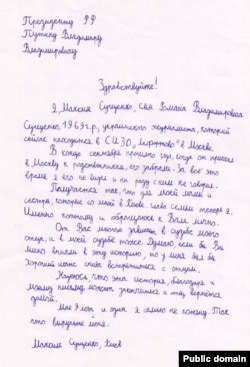 Президенту РФ
Путину Владимиру
Владимировичу
Здравствуйте!
Я, Максим Сущенко, сын Романа Владимировича
Сущенко, 1969 г.р., украинского журналиста, который
сейчас находится в СИЗО "Лефортово" в Москве.
В конце сентября прошлого года, когда он приехал
в Москву к родственникам, его забрали. За все это
время я его не видел и ни разу с ним не говорил.
Получается так, что для моей мамы и
сестры, которые со мной в Киеве, глава семьи теперь я.
Именно поэтому и обращаюсь к Вам лично.
От Вас многое зависит в судьбе моего
отца, и в моей судьбе тоже. Думаю, если бы Вы
лично вникли в эту историю, то у меня был бы
хороший шанс встретиться с отцом.
Надеюсь, что эта история, благодаря
моему письму, может закончится и папа вернётся
домой.
Мне 9 лет и один я семью не потяну. Так
что выручите меня.
Максим Сущенко, Киев
Public domain